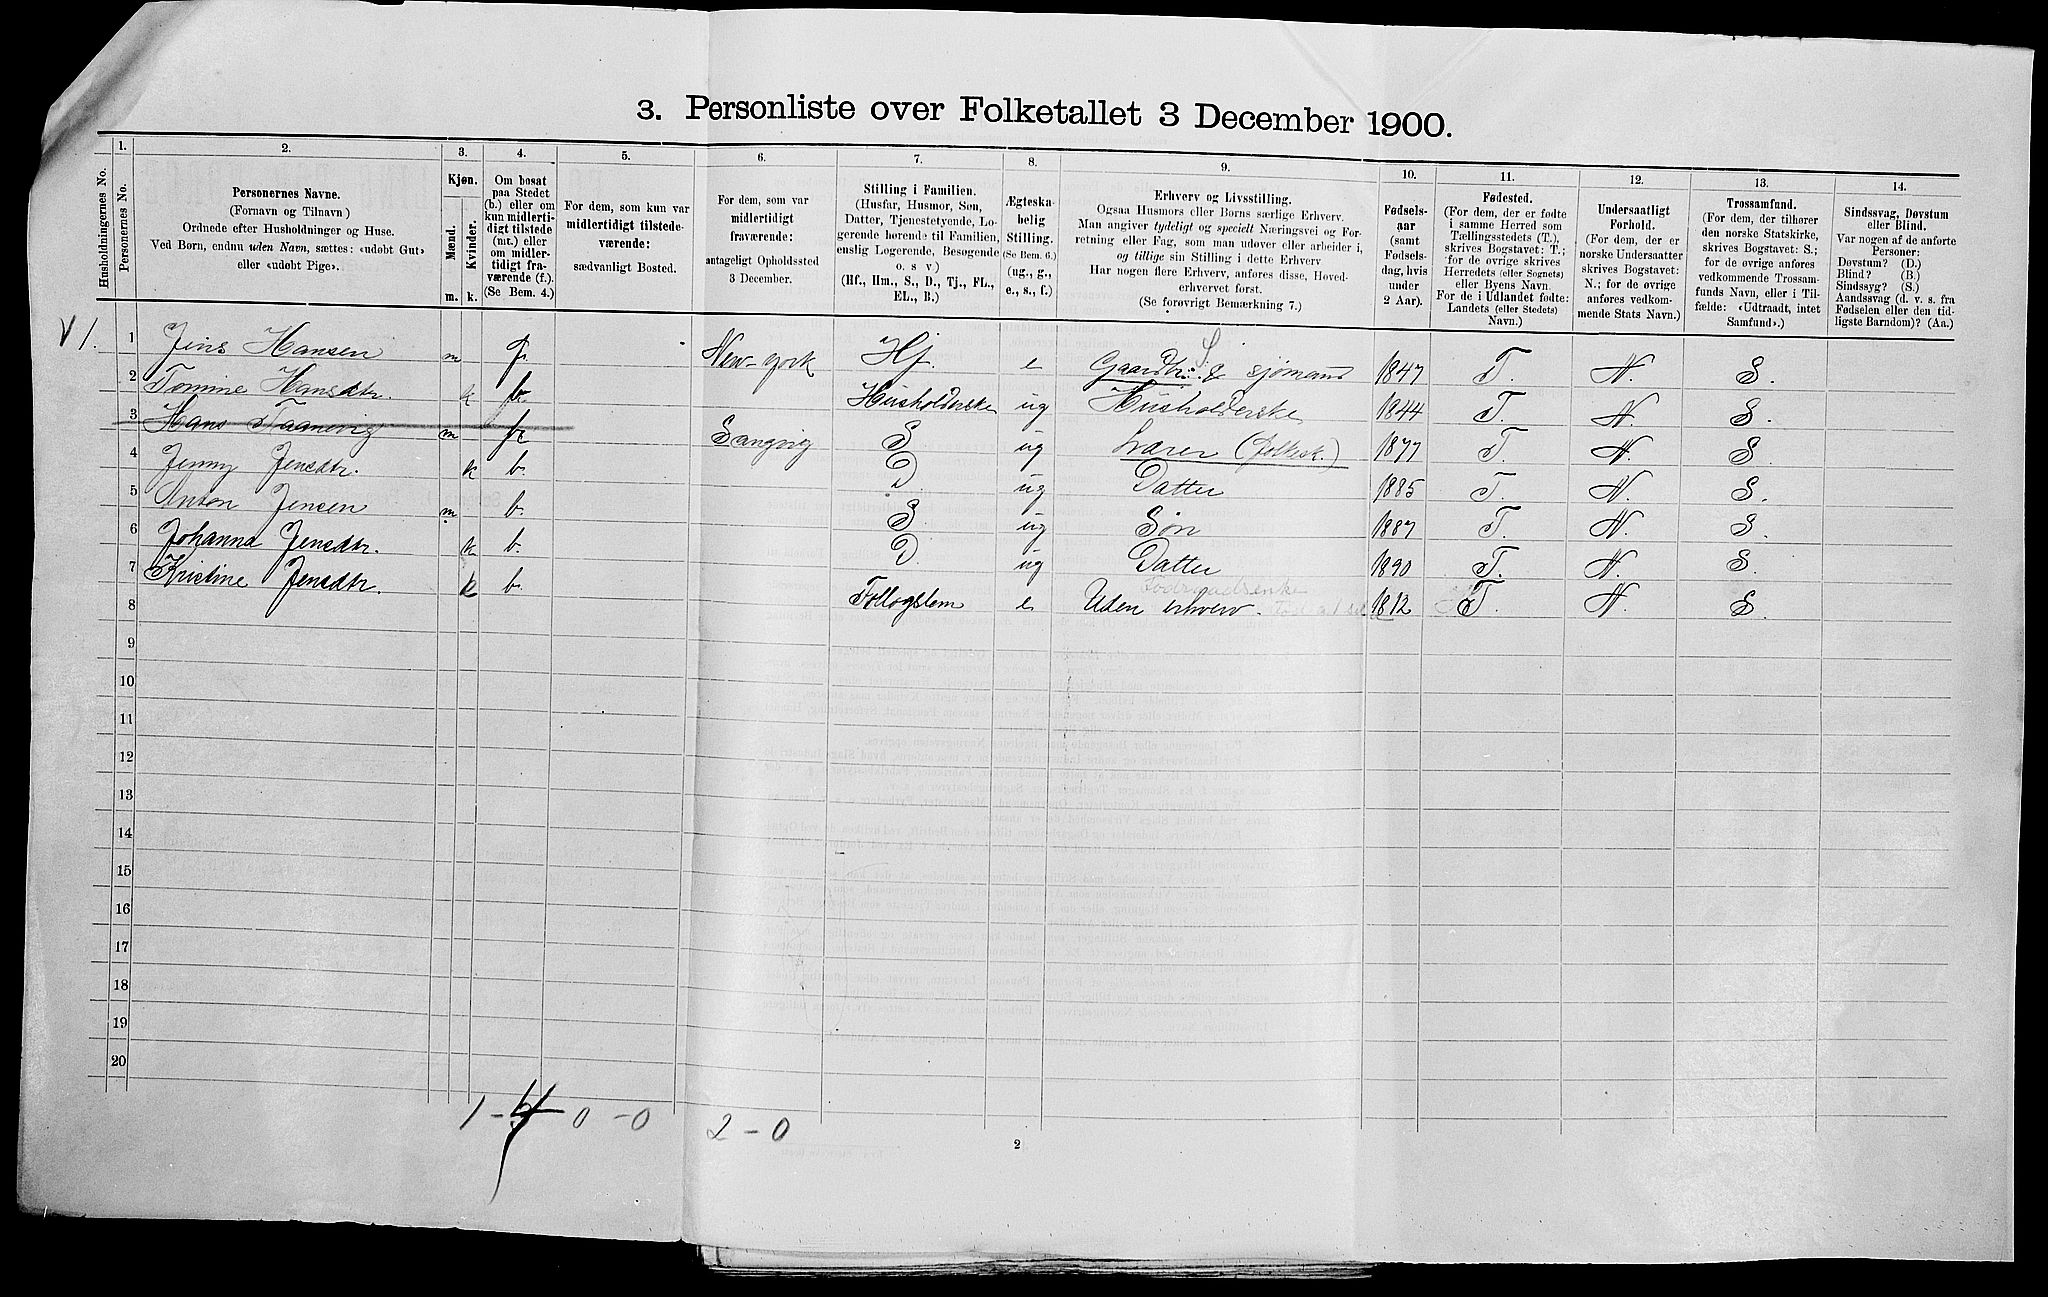 3. Personliste over Folketallet 3 December 1900.
Husholdningernes No.
1.
Personernes No.
2.
Personernes Navne.
(Fornavn og Tilnavn)
Ordnede efter Husholdninger og Huse.
Ved Børn, endnu uden Navn, sættes: «udøbt Gut»
eller «udøbt Pige».
3.
Kjøn.
Mænd.
Kvinder.
m.
k.
4.
Om bosat
paa Stedet
(b.) eller om
kun midlerti-
digt tilstede
(mt.) eller
om midler-
tidigt fra-
værende (f.).
(Se Bem. 4.)
5.
For dem, som kun var
midlertidigt tilstede-
værende:
sædvanligt Bosted.
6.
For dem, som var
midlertidigt
fraværende:
antageligt Opholdssted
3 December.
7.
Stilling i Familien.
(Husfar, Husmor, Søn,
Datter, Tjenestetyende, Lo-
gerende hørende til Familien,
enslig Logerende, Besøgende
o. s v.)
(Hf., Hm., S., D., Tj., FL.,
EL., B.)
8.
Ægteska-
belig
Stilling.
(Se Bem. 6.)
(ug., g.,
e., s., f.)
9.
Erhverv og Livsstilling.
Ogsaa Husmors eller Børns særlige Erhverv.
Man angiver tydeligt og specielt Næringsvei og For-
retning eller Fag, som man udøver eller arbeider i,
og tillige sin Stilling i dette Erhverv
Har nogen flere Erhverv, anføres disse, Hoved-
erhvervet først.
(Se forøvrigt Bemærkning 7.)
10.
Fødsels-
aar
(samt
Fødsels-
dag, hvis
under
2 Aar).
11.
Fødested.
(For dem, der er fødte
i samme Herred som
Tællingsstedets (T.),
skrives Bogstavet: T.;
for de øvrige skrives
Herredets (eller Sognets)
eller Byens Navn.
For de i Udlandet fødte:
Landets (eller Stedets)
Navn.)
12.
Undersaatligt
Forhold.
(For dem, der er
norske Undersaatter
skrives Bogstavet:
N.; for de øvrige
anføres vedkom-
mende Stats Navn.)
13.
Trossamfund.
(For dem, der tilhører
den norske Statskirke,
skrives Bogstavet: S.;
for de øvrige anføres
vedkommende Trossam-
funds Navn, eller i Til-
fælde: «Udtraadt, intet
Samfund».)
14.
Sindssvag, Døvstum
eller Blind.
Var nogen af de anførte
Personer:
Døvstum? (D.)
Blind? (B.)
Sindssyg? (S.)
Aandssvag (d. v. s. fra
Fødselen eller den tid-
ligste Barndom)? (Aa.)
V 1. 1 Jens Hansen m f. New-york Hf e Gaardbr. S. & sjømand 1847 T. N. S.
2 Tomine Hansdtr. k b. Husholderske ug Husholderske 1844 T. N. S.
3 Hans Taanevig m f. Sangvig S ug Lærer (folkesk.) 1877 T. N. S.
4 Jenny Jensdtr. k b. D ug Datter 1885 T. N. S.
5 Anton Jensen m b. S ug Søn 1887 T. N. S.
6 Johanna Jensdtr. k b. D ug Datter 1890 T. N. S.
7 Kristine Jensdtr. k b. Follogslem e Uden erhverv. 1812 T. N. S.
8
9
10
11
12
13
14
15
16
17
18
19
20
1 - 4 0 - 0 2 - 0
2